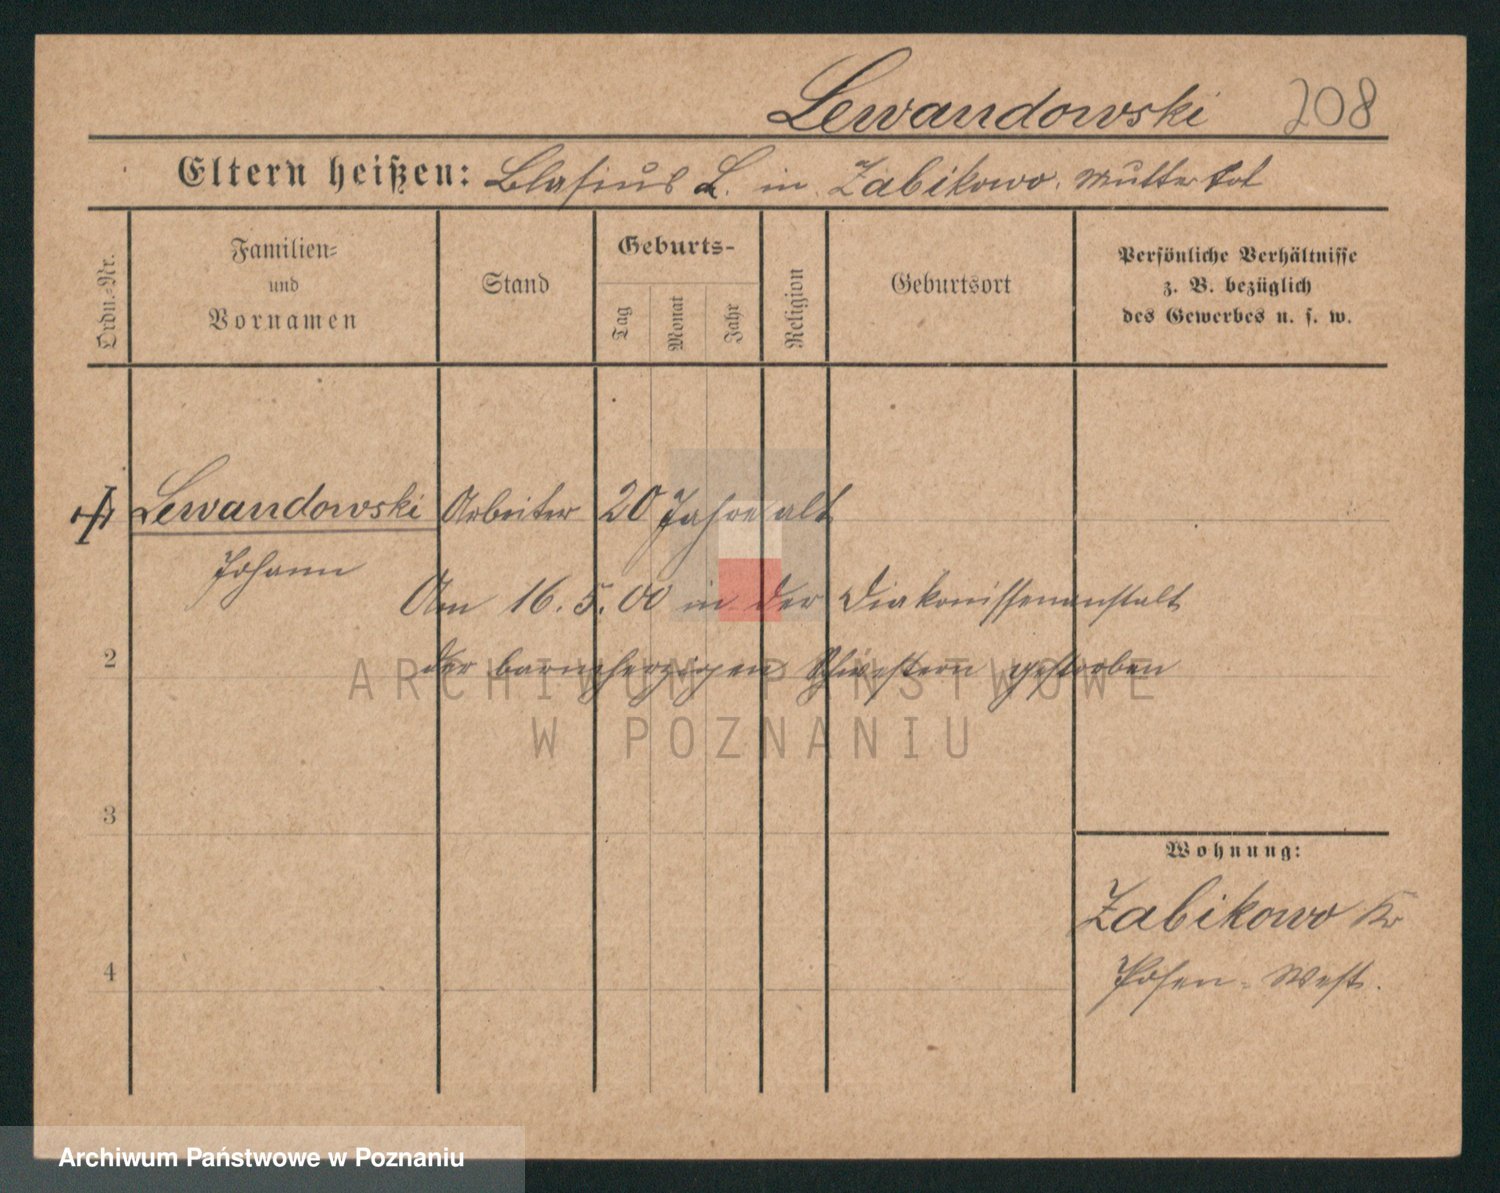 Lewandowski 208
Eltern heißen: Blasius L. in Zabikowo. Mutter tot
Ordn.-Nr.
Familien-
und
Vornamen
Stand
Geburts-
Tag
Monat
Jahr
Religion
Geburtsort
Persönliche Verhältnisse
z. B. bezüglich
des Gewerbes u. s. w.
Lewandowski Arbeiter 20 Jahre alt
Johann
Am 16. 5. 00 in der Diakonissenanstalt
2
der barmherzigen Schwestern gestorben
ARCHIWUM PAŃSTWOWE
W POZNANIU
3
Wohnung:
Zabikowo Kr
4
Posen-West.
Archiwum Państwowe w Poznaniu